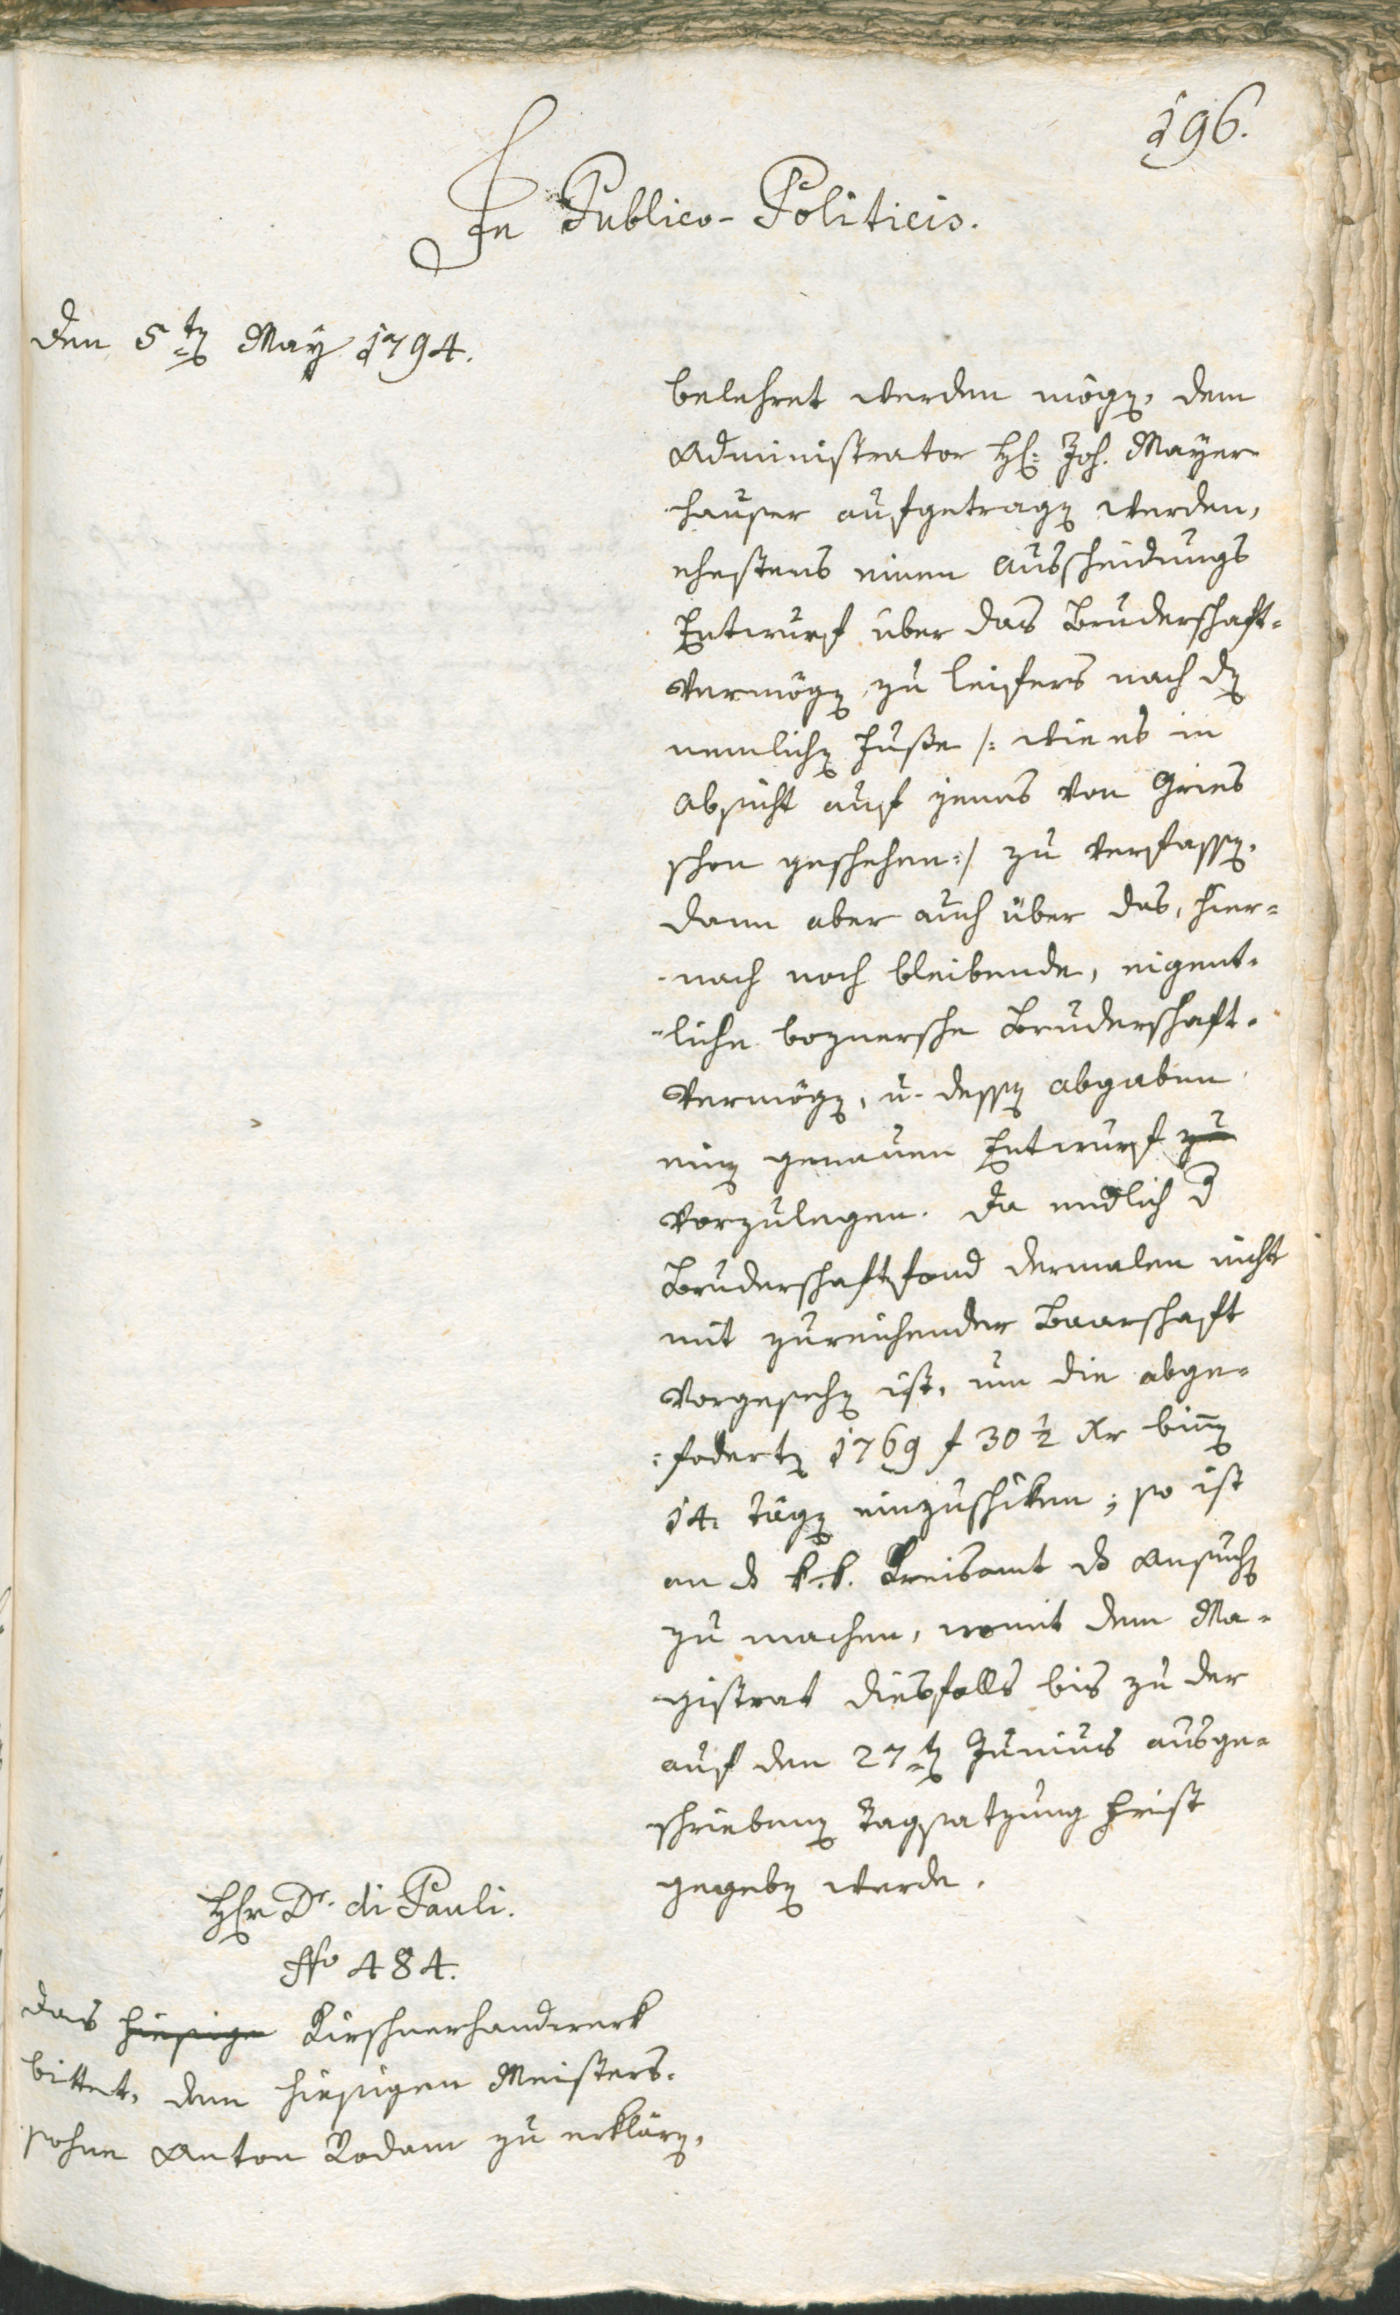 196.
In Publico-Politicis.
den 5ten May 1794.
belehret werden mögen, dem
Administrator H: Joh. Mayer-
hauser aufgetragen werden,
ehestens einen Ausscheidungs
Entwurf über das Bruderschaft-
vermögen zu Leifers nach den
nemlichen Fuße /: wie es in
Absicht auf jenes von Gries
schon geschehen :/ zu verfassen,
dann aber auch über das, hier-
-nach noch bleibende, eigent-
-liche boznersche Bruderschaft-
vermögen, u. dessen abgaben
einen genauen Entwurf zu
vorzulegen. Da endlich der
Bruderschaftsfond dermalen nicht
mit zureichender Baarschaft
vorgesehen ist, um die abge-
-foderten 1769 f 30 ½ Xr binnen
14. Tägen einzuschiken; so ist
an das k.k. Kreisamt das Ansuchen
zu machen, womit dem Ma-
gistrat diesfalls bis zu der
auf den 27ten Junius ausge-
schriebenen Tagsatzung Frist
gegeben werde.
Herr Dr. di Pauli.
No 484.
Das hiesige Kirschnerhandwerk
bittet, dem hiesigen Meisters-
sohne Anton Kodam zu erklären,